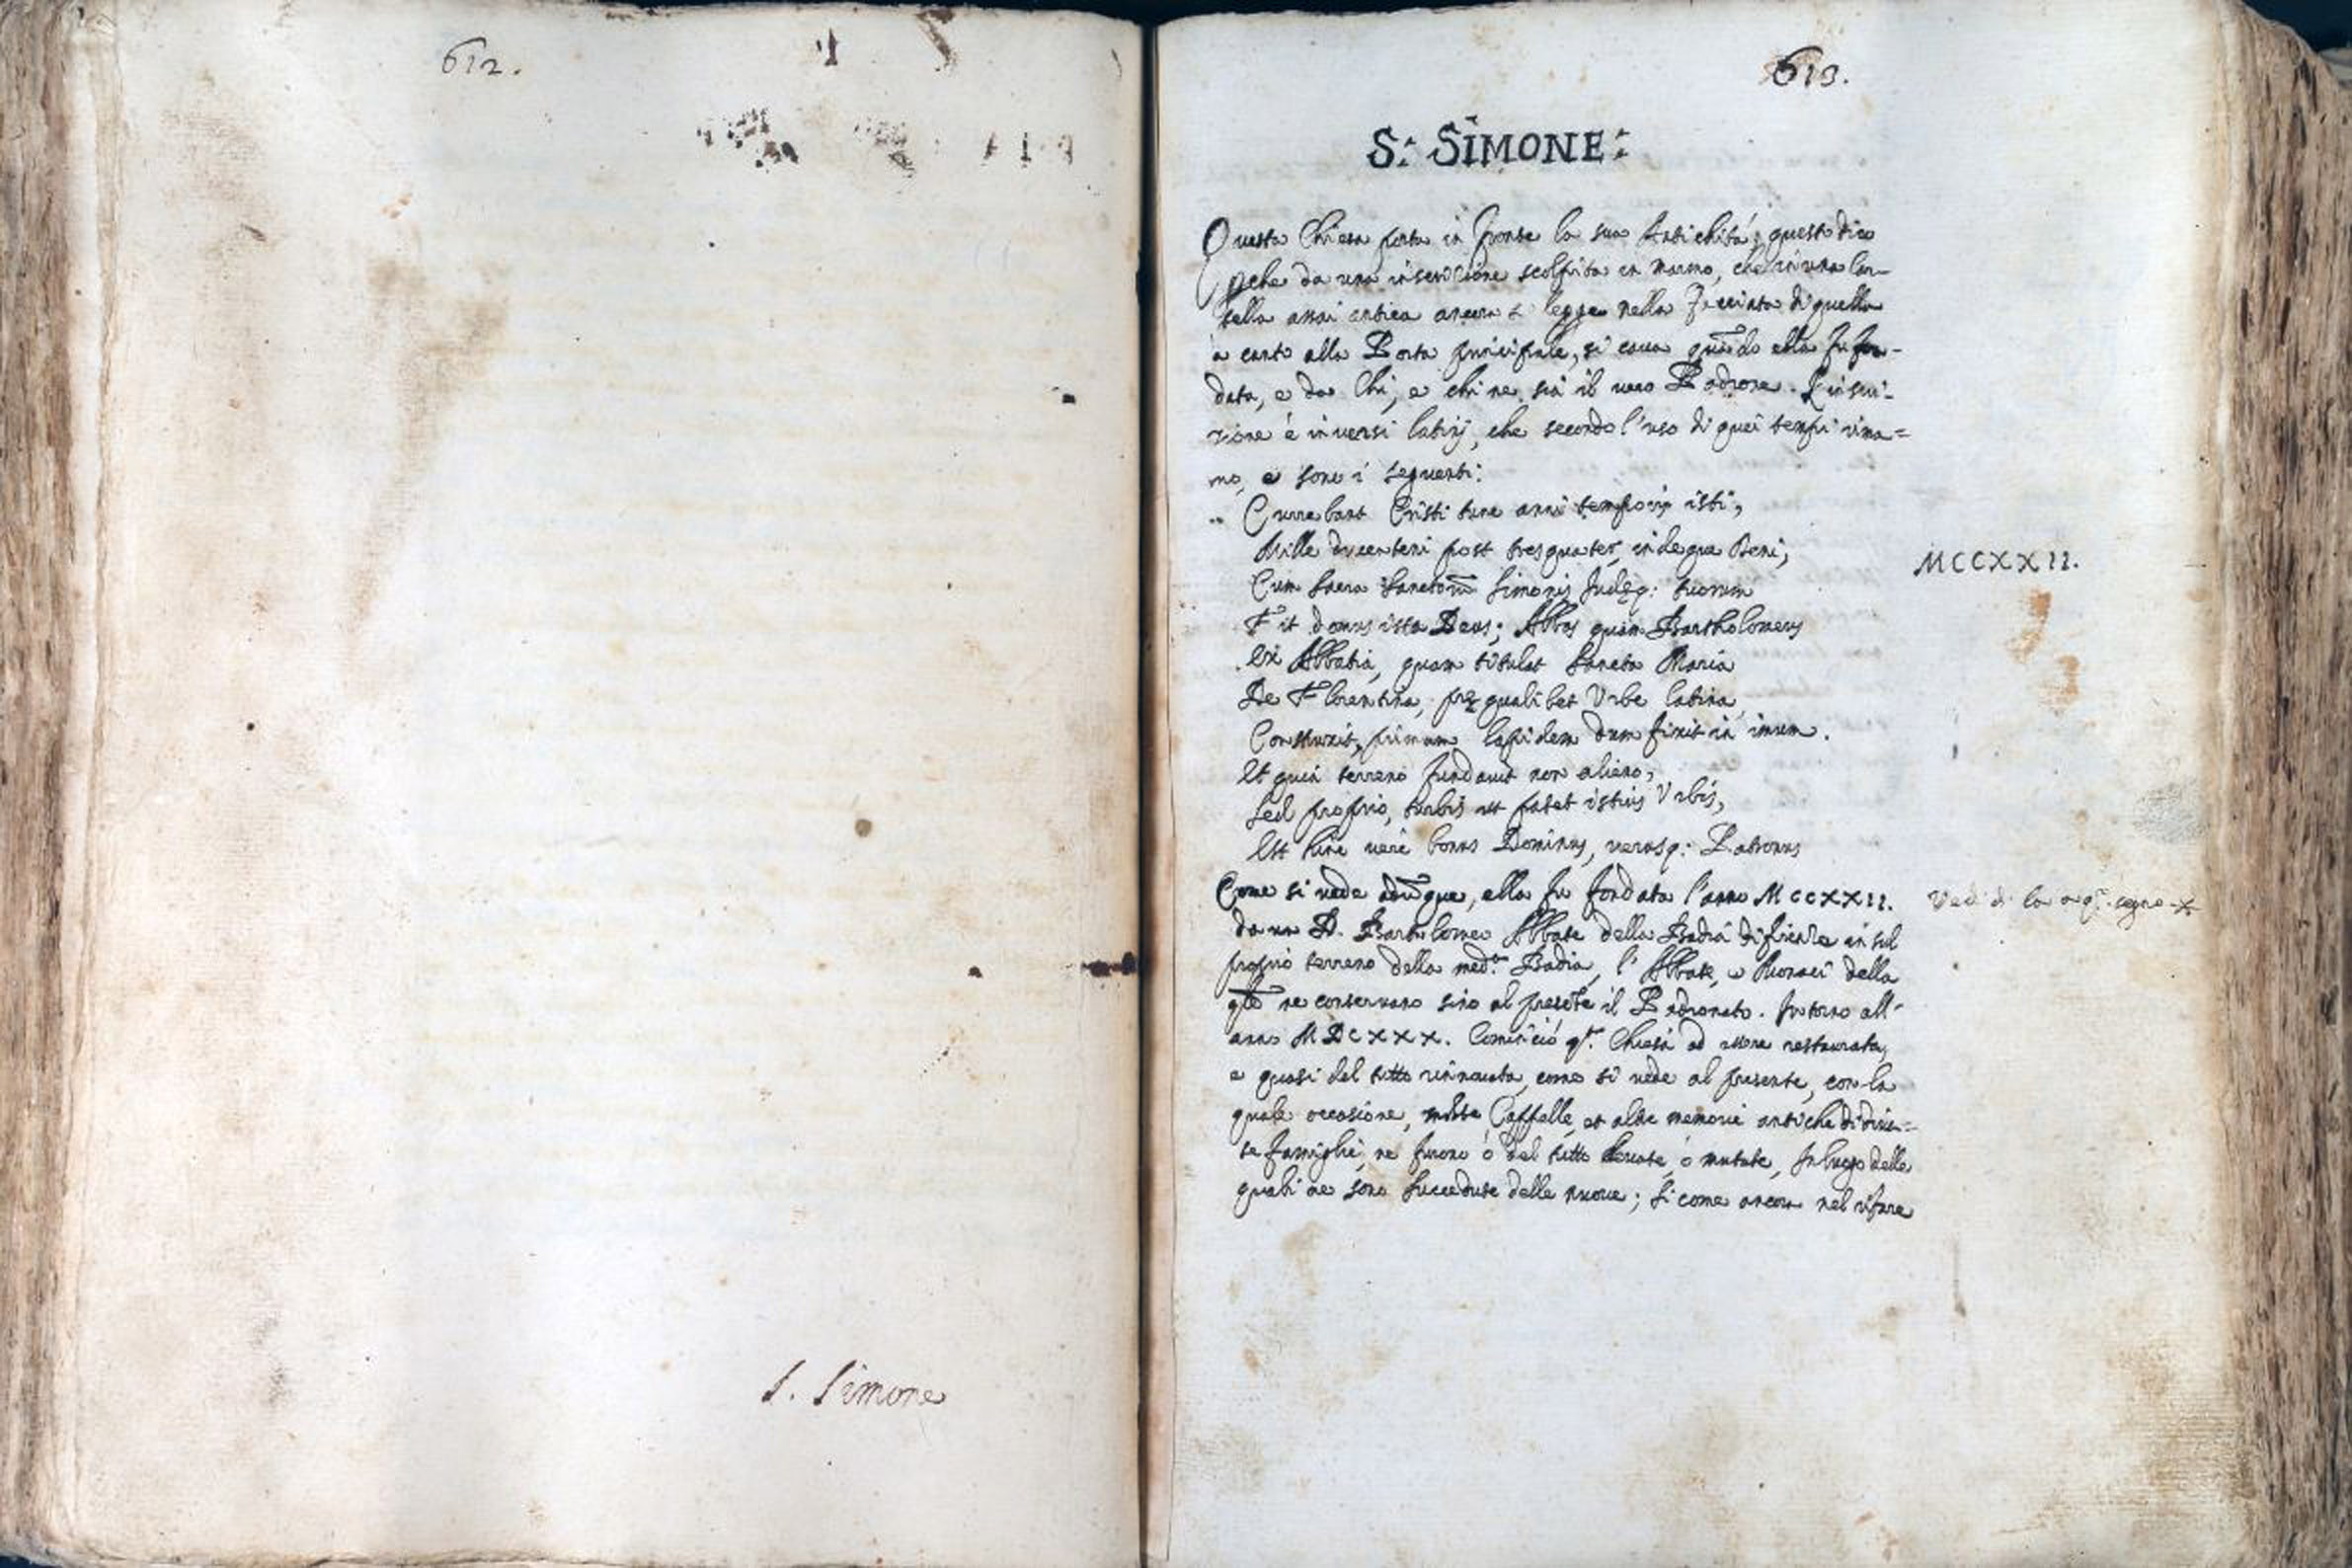 612.
S. Simone
613.
S: SIMONE:
Questa Chiesa porta in fronte la sua Antichità; questo dico
pche da una inscrizione scolpita in marmo, che in una Car-
tella assai antica ancora si legge nella Facciata di quella
a canto alla Porta principale, si cava quādo ella fu fon-
data, e da Chi, e chi ne sia il vero Padrone. L'inscri-
zione è in versi latinj, che secondo l'uso di quei tempi rima=
no, e sono i seguenti:
Currebant Cristi tunc anni temporis isti,
Mille ducenteni post tresquater, indeque Deni,
Cum sacra Sanctorū Simonis Judęq: tuorum
Fit domus ista Deus; Abbas quam Bartholomeus
Ex Abbatia, quam titulat Sancta Maria
De Florentina, prę qualibet Urbe latina,
Construxit, primum lapidem dum fixit in imum.
Et quia terreno fundavit non alieno,
Sed proprio, turbis ut patet istius Urbis,
Est hinc verè bonus Dominus, verusq: Patronus
MCCXXII.
Come si vede adūque, ella fu fondata l'anno MCCXXII.
Vedi di la a qº. segno ✶
da un D. Bartolomeo Abbate della Badia di firenze in sul
proprio terreno della med.ª Badia, l'Abbate, e Monaci della
qle ne conservano sino al presēte il Padronato. Intorno all'
anno MDCXXX. Cominciò qª. Chiesa ad essere restaurata,
e quasi del tutto rinnovata, come si vede al presente, con la
quale occasione, molte Cappelle, et altre memorie antiche di diver=
se famiglie, ne furono ò del tutto levate, ò mutate, In luogo delle
quali ne sono succedute delle nuove; si come ancora nel rifare